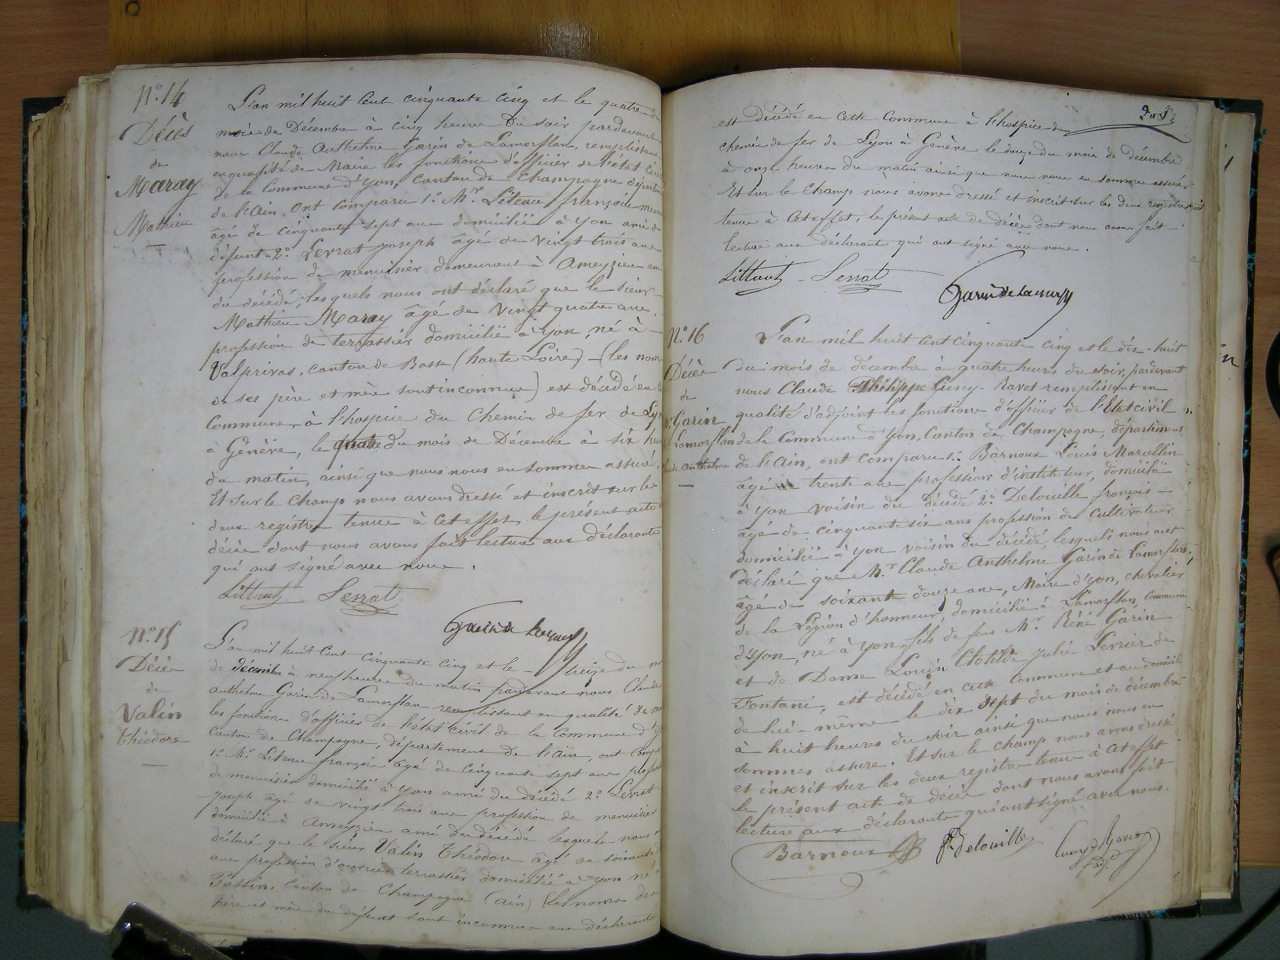 N° 14
Décès
de
Maray
Mathieu
L'an mil huit cent cinquante cinq et le quatre du
mois de Décembre à cinq heures du soir pardevant
nous Claude Anthelme Garin de Lamorflan, remplissant
en qualité de Maire les fonctions d'officier de l'état civil
de la Commune d'Yon, Canton de Champagne départem
de l'Ain, ont comparu 1° Mr. Liteau françois
âgé de cinquante sept ans domicilié à Yon ami du
défunt 2° Serrat joseph âgé de vingt trois ans
profession de menuisier demeurant à Ameyzieu ami
du décédé, lesquels nous ont déclaré que le sieur
Mathieu Maray âgé de vingt quatre ans
profession de terrassier domicilié à Yon, né à
Valprivas, canton de Bass (haute Loire) (les noms
de ses père et mère sont inconnus) est décédé en
Commune, à l'hospice du Chemin de fer de Ly
à Genève, le quatre du mois de Décembre à six heu
du matin, ainsi que nous nous en sommes assuré.
Et sur le champ nous avons dressé et inscrit sur les
deux registres tenus à cet effet, le présent acte
décès dont nous avons fait lecture aux déclarants
qui ont signé avec nous.
Serrat
Garin de Lamorfl
N° 15
Décès
de
Valin
théodore
L'an mil huit cent cinquante cinq et le seize du m
de décembre à neuf heures du matin pardevant nous Claude
Anthelme Garin de Lamorflan remplissant en qualité de m
les fonctions d'officier de l'état civil de la Commune d'Y
Canton de Champagne, département de l'Ain, ont comp
1° Mr. Liteau françois âgé de cinquante sept ans profess
de menuisier domicilié à Yon ami du décédé 2° Serrat
joseph âgé de vingt trois ans profession de menuisier
domicilié à Ameyzieu ami du décédé lesquels nous
déclaré que le sieur Valin théodore âgé de soixante
ans profession d'ouvrier terrassier domicilié à Yon né
canton de Champagne (ain) les noms de
père et mère du défunt sont inconnus aux déclarants
est décédé en cette Commune à l'hospice du
chemin de fer de Lyon à Genève le douze du mois de décembre
à onze heures du matin ainsi que nous nous en sommes assuré.
Et sur le champ nous avons dressé et inscrit sur les deux registres
tenus à cet effet, le présent acte de décès dont nous avons fait
lecture aux déclarants qui ont signé avec nous.
Serrat
Garin de Lamorfl
N° 16
Décès
de
Garin
Lamorflan
Anthelme
L'an mil huit cent cinquante cinq et le dix-huit
du mois de décembre à quatre heures du soir, pardevant
nous Claude Philippe Guny-Ravet remplissant en
qualité d'adjoint les fonctions d'officier de l'état civil
de la Commune d'Yon, Canton de Champagne, départem
de l'Ain, ont comparu 1° Barnoux Louis Marcellin
âgé de trente ans profession d'instituteur, domicilié
à Yon voisin du décédé 2° Delouille françois
âgé de cinquante six ans profession de cultivateur
domicilié à Yon voisin du décédé, lesquels nous ont
déclaré que Mr. Claude Anthelme Garin de Lamorflan,
âgé de soixante douze ans, Maire d'Yon, chevalier
de la Légion d'honneur, domicilié à Lamorflan, commune
d'Yon, né à Yon, fils de feu Mr. René Garin
et de Dame Louise Clotilde Julie Perrier de
Fontani, est décédé en cette Commune et au domicile
de lui-même le dix sept du mois de décembre
à huit heures du soir ainsi que nous nous en
sommes assuré. Et sur le champ nous avons dressé
et inscrit sur les deux registres tenus à cet effet
le présent acte de décès dont nous avons fait
lecture aux déclarants qui ont signé avec nous.
Barnoux
Delouille